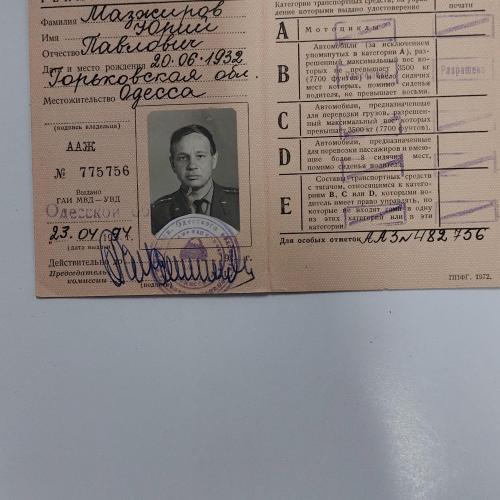 Фамилия Мазжиров
Имя Юрий
Отчество Павлович
Дата и место рождения 20.06.1932
Горьковская обл.
Местожительство Одесса
(подпись владельца)
ААЖ
№ 775756
Выдано
ГАИ МВД — УВД
Одесской
23.04
(дата выдачи)
Действительно до
Председатель
комиссии
(подпись)
Категории транспортных средств, на управ-
ление которыми выдано удостоверение
печати
A Мотоциклы
B Автомобили (за исключением
упомянутых в категории А), разре-
шенный максимальный вес кото-
рых не превышает 3500 кг
(7700 фунтов) и число сидячих
мест которых, помимо сиденья
водителя, не превышает восьми.
Разрешено
C Автомобили, предназначенные
для перевозки грузов, разрешен-
ный максимальный вес которых
превышает 3500 кг (7700 фунтов).
D Автомобили, предназначенные
для перевозки пассажиров и имею-
щие более 8 сидячих мест,
помимо сиденья водителя.
E Составы транспортных средств
с тягачом, относящимся к катего-
риям В, С или D, которыми во-
дитель имеет право управлять, но
которые не входят сами в одну
из этих категорий или в эти
категории.
Для особых отметок ААЗ № 482756
ППФГ. 1972.